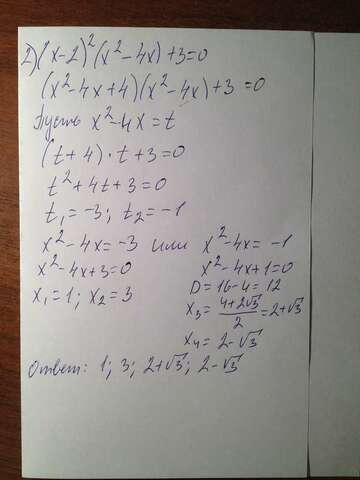 2) (x-2)²(x²-4x)+3=0
(x²-4x+4)(x²-4x)+3=0
Пусть x²-4x=t
(t+4)·t+3=0
t²+4t+3=0
t₁=-3; t₂=-1
x²-4x=-3 или x²-4x=-1
x²-4x+3=0 x²-4x+1=0
x₁=1; x₂=3 D=16-4=12
x₃=(4+2√3)/2=2+√3
x₄=2-√3
Ответ: 1; 3; 2+√3; 2-√3